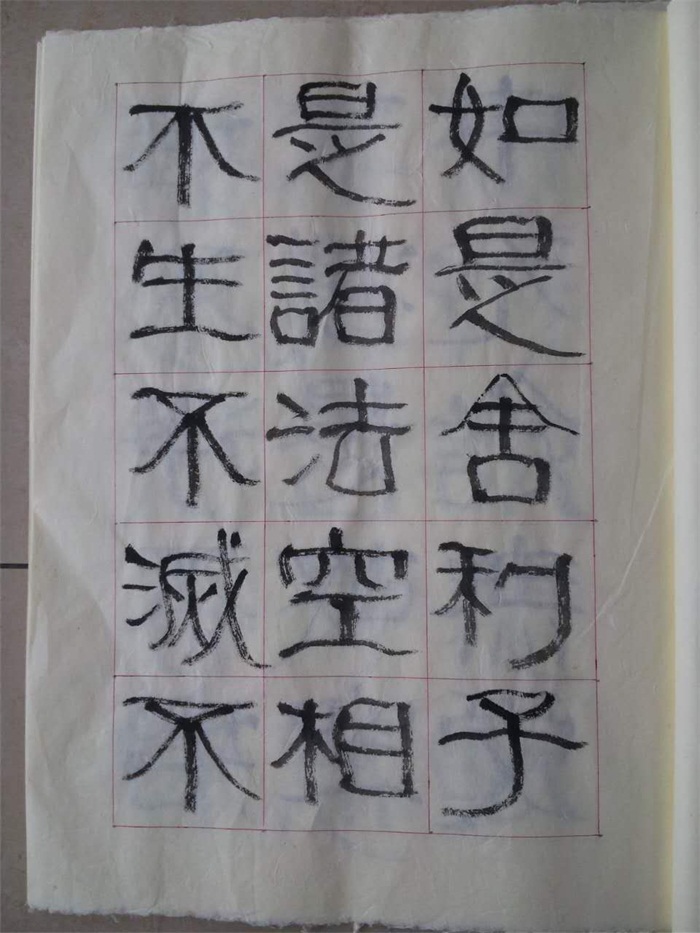 如是舍利子
是諸法空相
不生不滅不